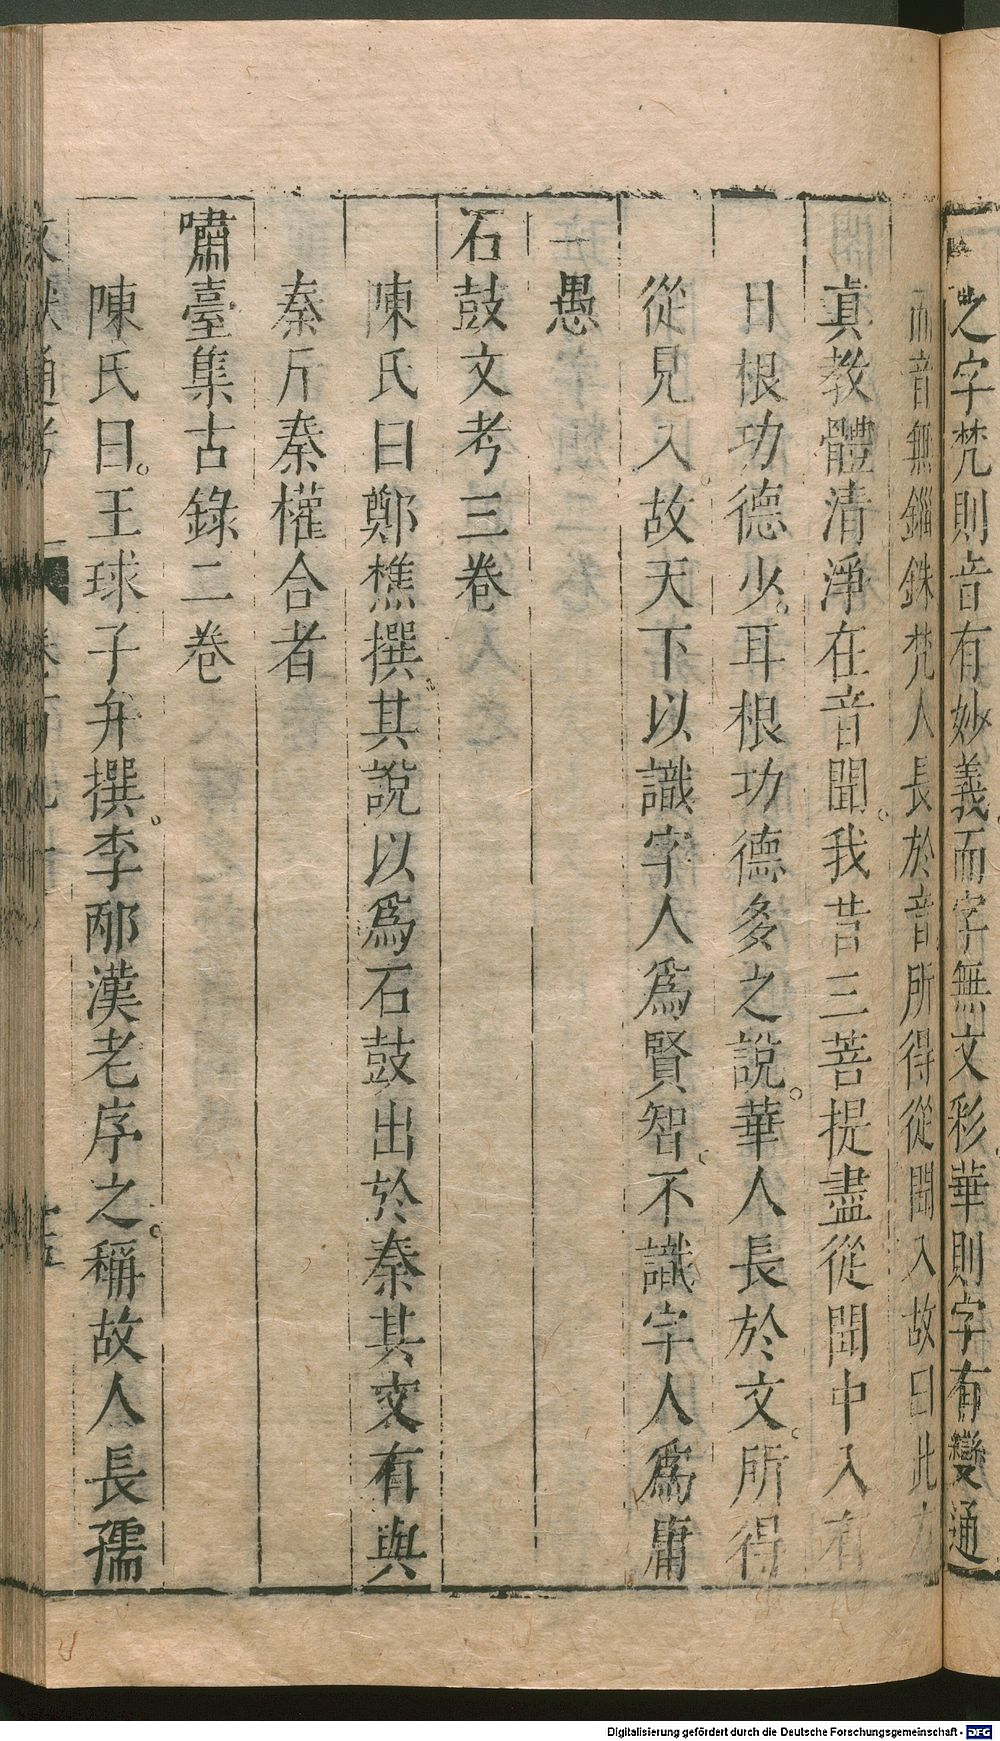 之字梵則音有妙義而字無文彩華則字有變通
而音無錙銖梵人長於音所得從聞入故曰此方
眞教體清淨在音聞。我昔三菩提盡從聞中入有
目根功德少。耳根功德多之說。華人長於文。所得
從見入。故天下以識字人爲賢智。不識字人爲庸
愚
石鼓文考三卷
陳氏曰鄭樵撰。其說以爲石鼓出於秦其文有與
秦斤秦權合者
嘯臺集古錄二卷
陳氏曰。王球子弁撰。李邴漢老序之。稱故人長孺
通考 卷百九十
Digitalisierung gefördert durch die Deutsche Forschungsgemeinschaft - DFG